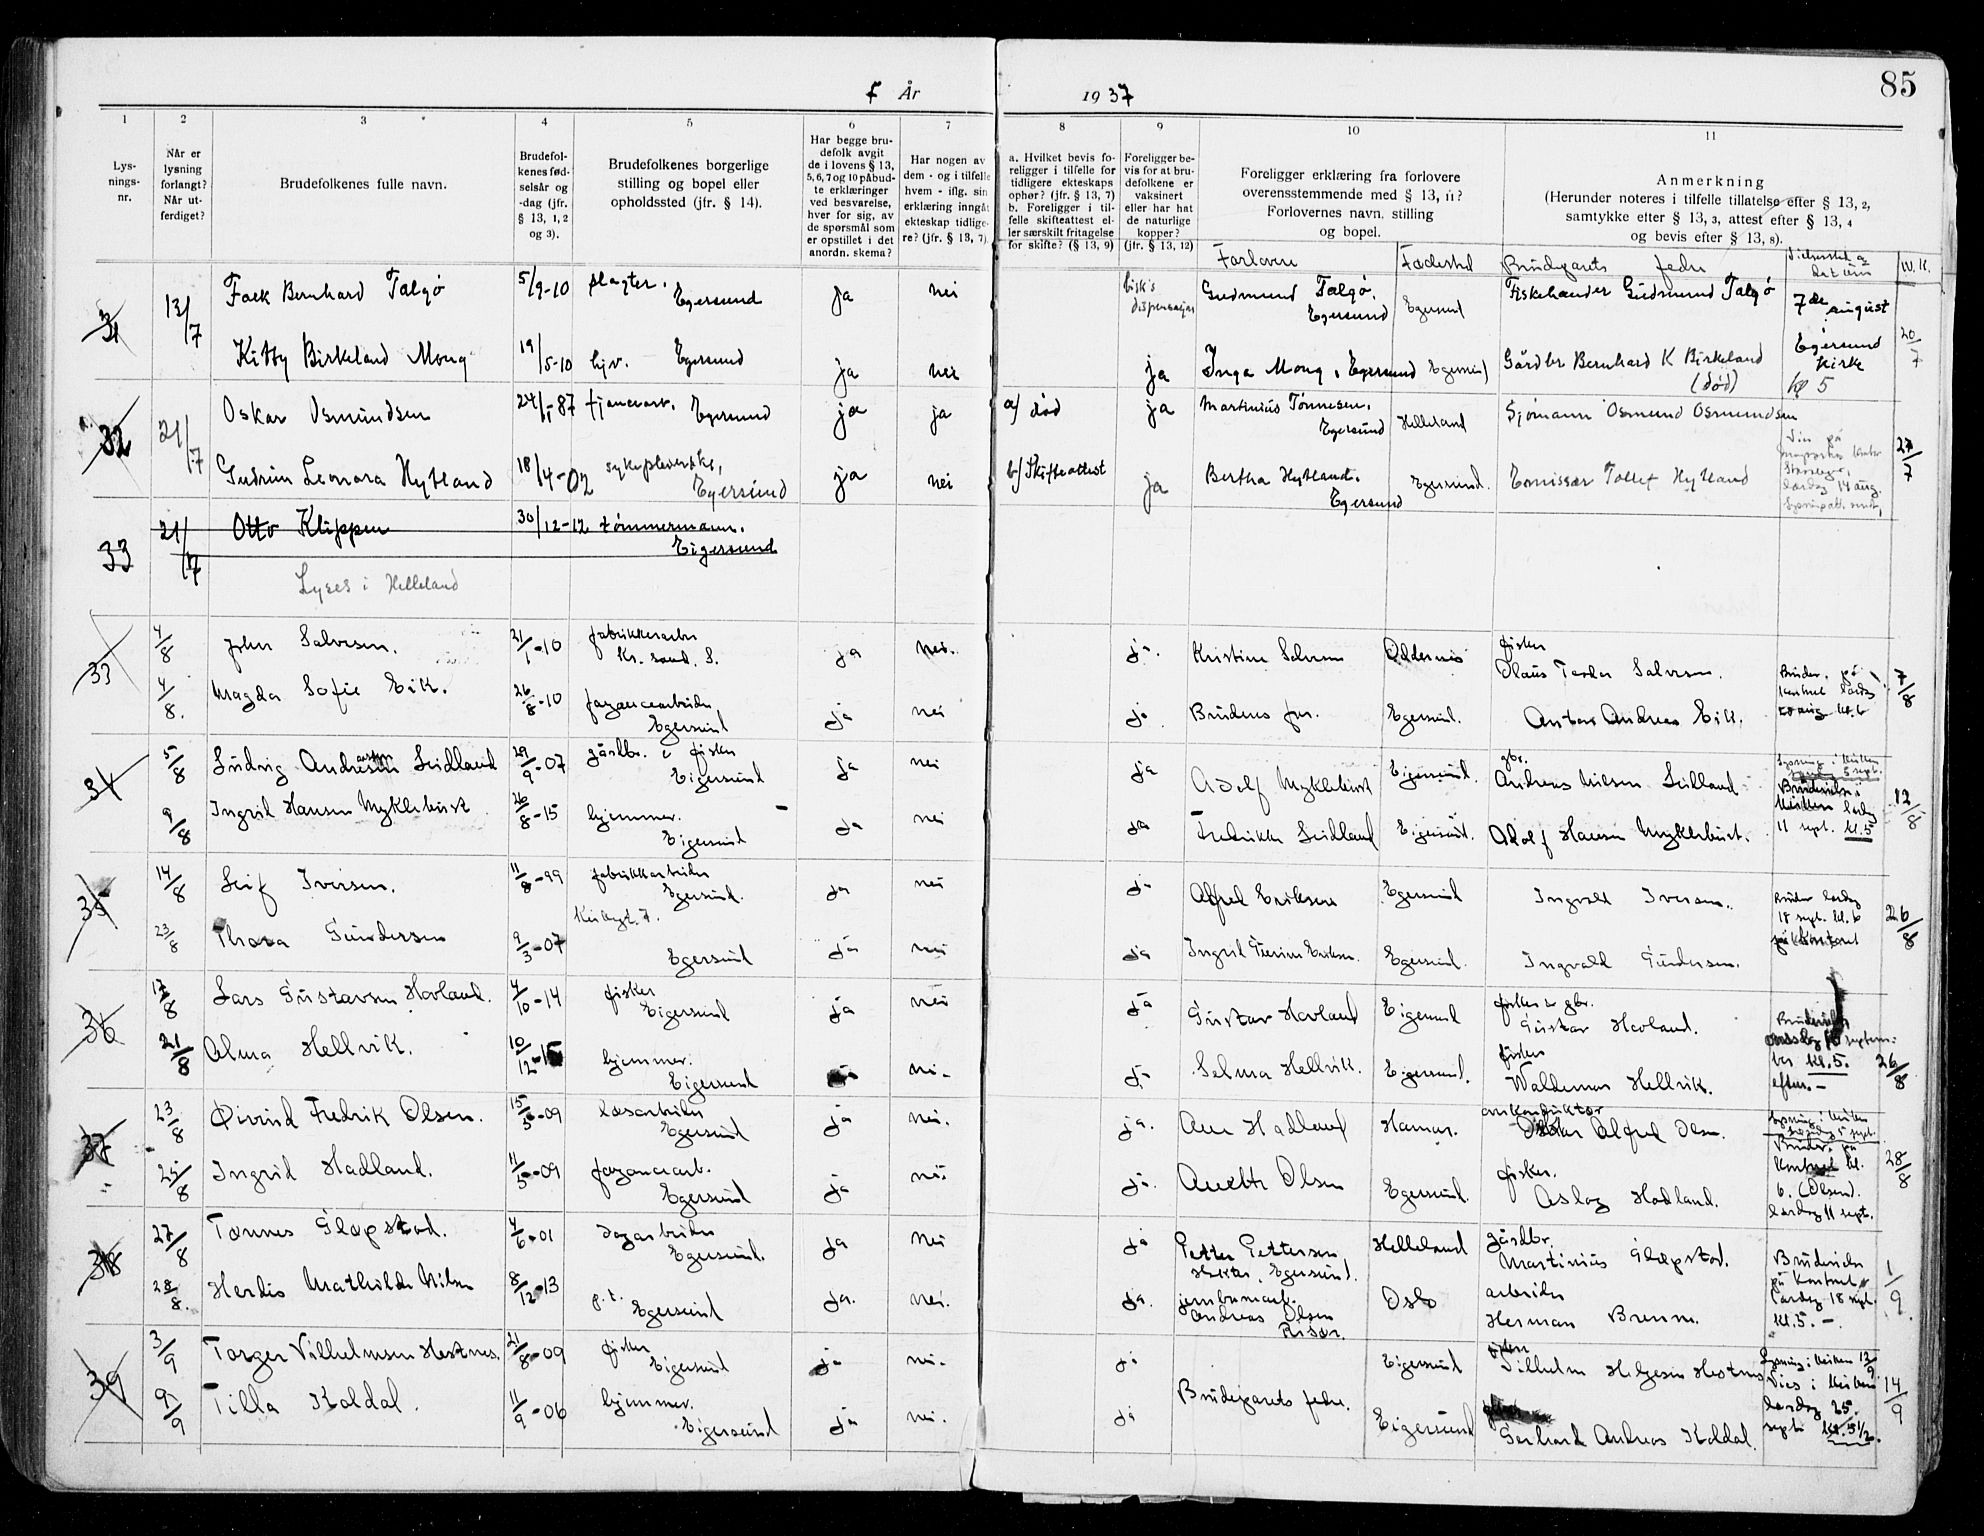 85
f År 1937
1 2 3 4 5 6 7 8 9 10 11
Lys-
nings-
nr.
Når er
lysning
forlangt?
Når ut-
ferdiget?
Brudefolkenes fulle navn.
Brudefol-
kenes fød-
selsår og
-dag (jfr.
§ 13, 1, 2
og 3).
Brudefolkenes borgerlige
stilling og bopel eller
opholdssted (jfr. § 14).
Har begge bru-
defolk avgit
de i lovens § 13,
5, 6, 7 og 10 påbud-
te erklæringer
ved besvarelse,
hver for sig, av
de spørsmål som
er opstillet i det
anordn. skema?
Har nogen av
dem - og i tilfelle
hvem - iflg. sin
erklæring inngåt
ekteskap tidlige-
re? (jfr. § 13, 7).
a. Hvilket bevis fo-
religger i tilfelle for
tidligere ekteskaps
ophør? (jfr. § 13, 7)
b. Foreligger i til-
felle skifteattest el-
ler særskilt fritagelse
for skifte? (§ 13, 9)
Foreligger be-
vis for at bru-
defolkene er
vaksinert
eller har hat
de naturlige
kopper?
(jfr. § 13, 12)
Foreligger erklæring fra forlovere
overensstemmende med § 13, 11?
Forlovernes navn, stilling
og bopel.
Anmerkning
(Herunder noteres i tilfelle tillatelse efter § 13, 2,
samtykke efter § 13, 3, attest efter § 13, 4
og bevis efter § 13, 8).
Forlovere Fødested Brudeparets fedre
31 13/7 Falk Bernhard Talgø 5/9-10 slagter. Egersund ja nei Gudmund Talgø. Egersund Egersund Fiskehandler Gudmund Talgø 7de august
Kitty Birkeland Mong 19/5-10 hjv. Egersund ja nei ja Inga Mong, Egersund Egersund Gårdbr Bernhard K Birkeland (død) Egersund kirke kl 5 20/7
32 21/7 Oskar Osmundsen 24/ -87 Egersund ja ja a/ død ja Martinius Tønnesen. Egersund Helleland Sjømann Osmund Osmundsen
Gudrun Leonora Hytland 18/4-02 sykepleierske, Egersund ja nei b/ Skifteattest ja Bertha Hytland. Egersund Egersund. Emissær Tollef Hytland lørdag 14 aug. 27/7
33 21/7 Otto Klippen 30/12-12 tømmermann. Eigersund
Lyses i Helleland
33 4/8 John Salvesen. 21/1-10 fabrikkarbn Kr. sand. S. ja nei. ja. Kristine Salvesen Oddernes fisker Olaus Salvesen.
4/8. Magda Sofie Eik. 26/8-10 fayancearbeider, Egersund ja nei ja Brudens far. Egersund. Anton Andreas Eik. 7/8
34 5/8 Ludvig Andresen Leidland 29/9-07 gårdbr. i fisker Eigersund ja nei ja Adolf Myklebust Eigersund. gbr. Andreas Nilsen Leidland
9/8 Ingrid Hansen Myklebust 26/8-15 hjemmev. Eigersund ja nei ja Fredrikke Leidland Eigersund. Adolf Hansen Myklebust. lørdag 11 sept. kl. 5 12/8
35 14/8 Leif Iversen. 11/8-99 fabrikkarbeider Egersund. ja nei ja Alfred Eriksen Egersund Ingvald Iversen.
23/8 Thora Gundersen 9/3-07 Egersund ja nei ja Ingrid Eriksen. Egersund. Ingvald Gundersen. Bruder lørdag 18 sept. kl. 6 på kontoret 26/8
36 17/8 Lars Gustavsen Hovland. 4/10-14 fisker Eigersund ja nei ja Gustav Hovland Eigersund fisker & gbr. Gustav Hovland.
21/8 Alma Hellvik. 10/12-15 hjemmev. Eigersund nei. ja Selma Hellvik. Eigersund. fisker Waldemar Hellvik. kl. 5. efterm.- 26/8
37 23/8 Øivind Fredrik Olsen. 15/5-09 Egersund ja nei. ja. Ane Hadland Hamar. Alfred Olsen.
25/8 Ingrid Hadland. 11/5-09 fayancearb. Egersund ja nei. ja. Anette Olsen Egersund. fisker. Aslag Hadland. kontoret kl. 6. (Olsen). lørdag 11 sept. 28/8
38 27/8 Tønnes Glæpstad. 4/6-01 Egersund. ja nei ja Petter Pettersen, Egersund. Helleland gårdbr. Martinius Glæpstad.
28/8. Herdis Mathilde Nilsen 8/12-13 p.t. Egersund ja. nei. ja. Andreas Olsen Risør. Oslo arbeider Herman Brenne. på kontoret lørdag 18 sept. kl. 5.- 1/9
39 3/9 Torger Vilhelmsen Hestnes. 21/8-09 fisker Eigersund ja nei. ja Eigersund Vilhelm Helgesen Hestnes
9/9 Tilla Koldal. 11/9-06 hjemmev. Eigersund ja nei. ja Brudeparets fedre. Eigersund Gerhard Andreas Koldal. Lysning i kirken 12/9 Vies i kirken lørdag 25. sept. kl. 5 1/2. 14/9